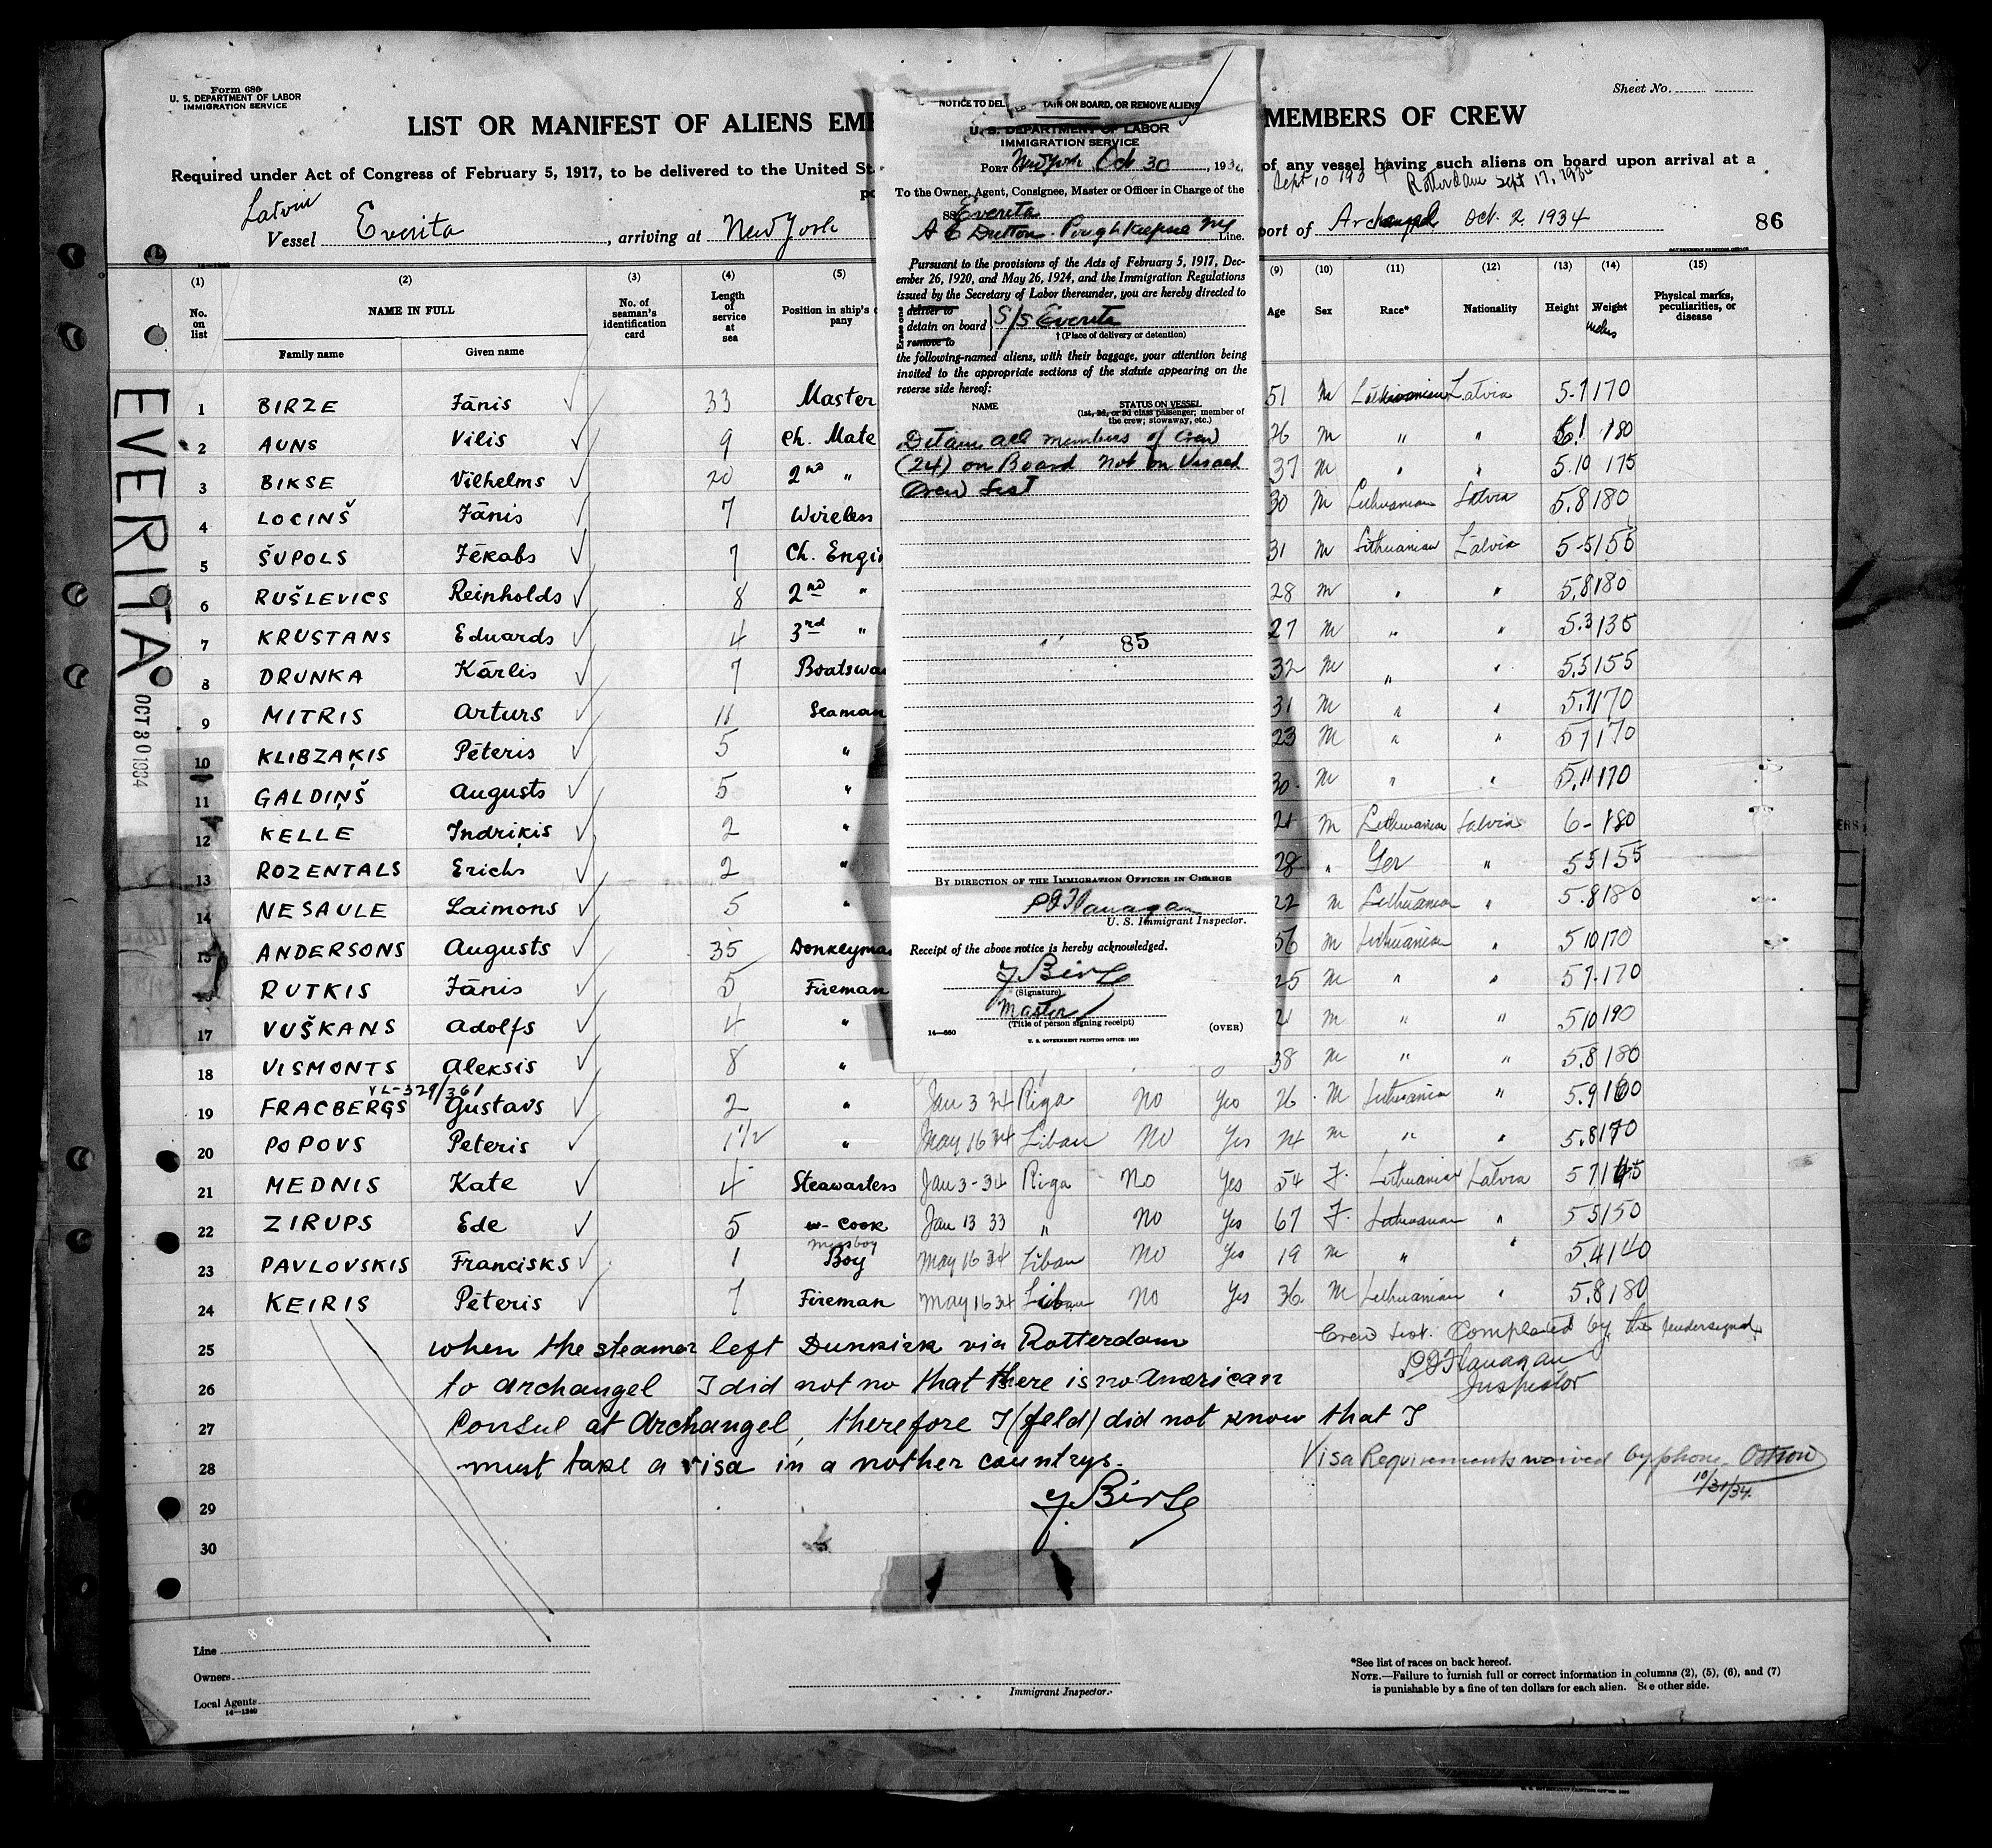 Form 680
U. S. DEPARTMENT OF LABOR
IMMIGRATION SERVICE
Sheet No.
LIST OR MANIFEST OF ALIENS EM
MEMBERS OF CREW
Required under Act of Congress of February 5, 1917, to be delivered to the United St
of any vessel having such aliens on board upon arrival at a
Sept 10 1934 Rotterdam Sept 17, 193
Latvin
Vessel Everita, arriving at New York
port of Archangel Oct. 2. 1934
86
NOTICE TO DEL TAIN ON BOARD, OR REMOVE ALIENS
U. S. DEPARTMENT OF LABOR
IMMIGRATION SERVICE
PORT OF New York Oct 30, 193
To the Owner, Agent, Consignee, Master or Officer in Charge of the
SS Evereta
A C Dutton. Poughkeepsie NY Line.
Pursuant to the provisions of the Acts of February 5, 1917, Dec-
ember 26, 1920, and May 26, 1924, and the Immigration Regulations
issued by the Secretary of Labor thereunder, you are hereby directed to
Erase one
deliver to
detain on board
remove to
S/S Evereta
†(Place of delivery or detention)
the following-named aliens, with their baggage, your attention being
invited to the appropriate sections of the statute appearing on the
reverse side hereof:
NAME
STATUS ON VESSEL
(1st, 2d, or 3d class passenger; member of
the crew; stowaway, etc.)
Detain all members of Crew
(24) on Board not on Visaed
Crew List
85
BY DIRECTION OF THE IMMIGRATION OFFICER IN CHARGE
P J Flanagan
U. S. Immigrant Inspector.
Receipt of the above notice is hereby acknowledged.
J Birze
(Signature)
Master
(Title of person signing receipt)
14—660
(OVER)
U. S. GOVERNMENT PRINTING OFFICE: 1932
(1) (2) (3) (4) (5) (9) (10) (11) (12) (13) (14) (15)
No. on list
NAME IN FULL
Family name
Given name
No. of seaman's identification card
Length of service at sea
Position in ship's
pany
Age Sex Race* Nationality Height Weight
Physical marks, peculiarities, or disease
EVERITA
OCT 30 1934
1 BIRZE Jānis 33 Master 51 M Lithuanian Latvia 5-7 170
2 AUNS Vilis 9 Ch. Mate 26 M " " 6.1 180
3 BIKSE Vilhelms 20 2nd " 37 M " " 5.10 175
4 LOCINŠ Jānis 7 Wireless 30 M Lithuanian Latvia 5.8 180
5 ŠUPOLS Jēkabs 7 Ch. Engi 31 M Lithuanian Latvia 5-5 155
6 RUŠLEVICS Reinholds 8 2nd " 28 M " " 5.8 180
7 KRUSTANS Eduards 4 3rd " 27 M " " 5.3 135
8 DRUNKA Kārlis 7 Boatswa 32 M " " 5.5 155
9 MITRIS Arturs 11 Seaman 31 M " " 5.7 170
10 KLIBZAĶIS Pēteris 5 " 23 M " " 5 7 170
11 GALDIŅŠ Augusts 5 " 30 M " " 5.11 170
12 KELLE Indriķis 2 " 21 M Lithuanian Latvia 6- 180
13 ROZENTALS Erichs 2 " 28 " Ger " 5 5 155
14 NESAULE Laimons 5 " 22 M Lithuanian " 5.8 180
15 ANDERSONS Augusts 35 Donkeyma 56 M Lithuanian " 5 10 170
16 RUTKIS Jānis 5 Fireman 25 M " " 5 7 170
17 VUŠKANS Adolfs 4 " 21 M " " 5 10 190
18 VISMONTS Aleksis 8 " 38 M " " 5.8 180
VL-329/361
19 FRACBERGS Gustavs 2 " Jan 3 34 Riga No Yes 26 M Lithuanian " 5.9 160
20 POPOVS Peteris 1 1/2 " May 16 34 Libau No Yes 24 M " " 5.8 170
21 MEDNIS Kate 4 Steawarless Jan 3-34 Riga No Yes 54 F. Lithuanian Latvia 5 7 165
22 ZIRUPS Ede 5 Cook Jan 13 33 " No Yes 67 F. Lithuanian " 5 5 150
messboy
23 PAVLOVSKIS Francisks 1 Boy May 16 34 Libau No Yes 19 M " " 5.4 140
24 KEIRIS Pēteris 7 Fireman May 16 34 Libau No Yes 36. M Lithuanian " 5.8 180
25 when the steamer left Dunkirk via Rotterdam
Crew List. Completed by the undersigned
26 to archangel I did not no that there is no American
P J Flanagan
Inspector
27 Consul at Archangel, therefore I (feld) did not know that I
28 must take a visa in a nother countrys.
Visa Requirements waived by phone
10/31/34.
29
J Birze
30
Line
Owners
Local Agents
14—1240
Immigrant Inspector.
*See list of races on back hereof.
NOTE.—Failure to furnish full or correct information in columns (2), (5), (6), and (7)
is punishable by a fine of ten dollars for each alien. See other side.